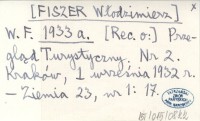 [FISZER Włodzimierz] x
W. F. 1933 a. [Rec. o:] Prze-
gląd Turystyczny. Nr 2.
Kraków, 1 września 1932 r.
— Ziemia 23, nr 1: 17.